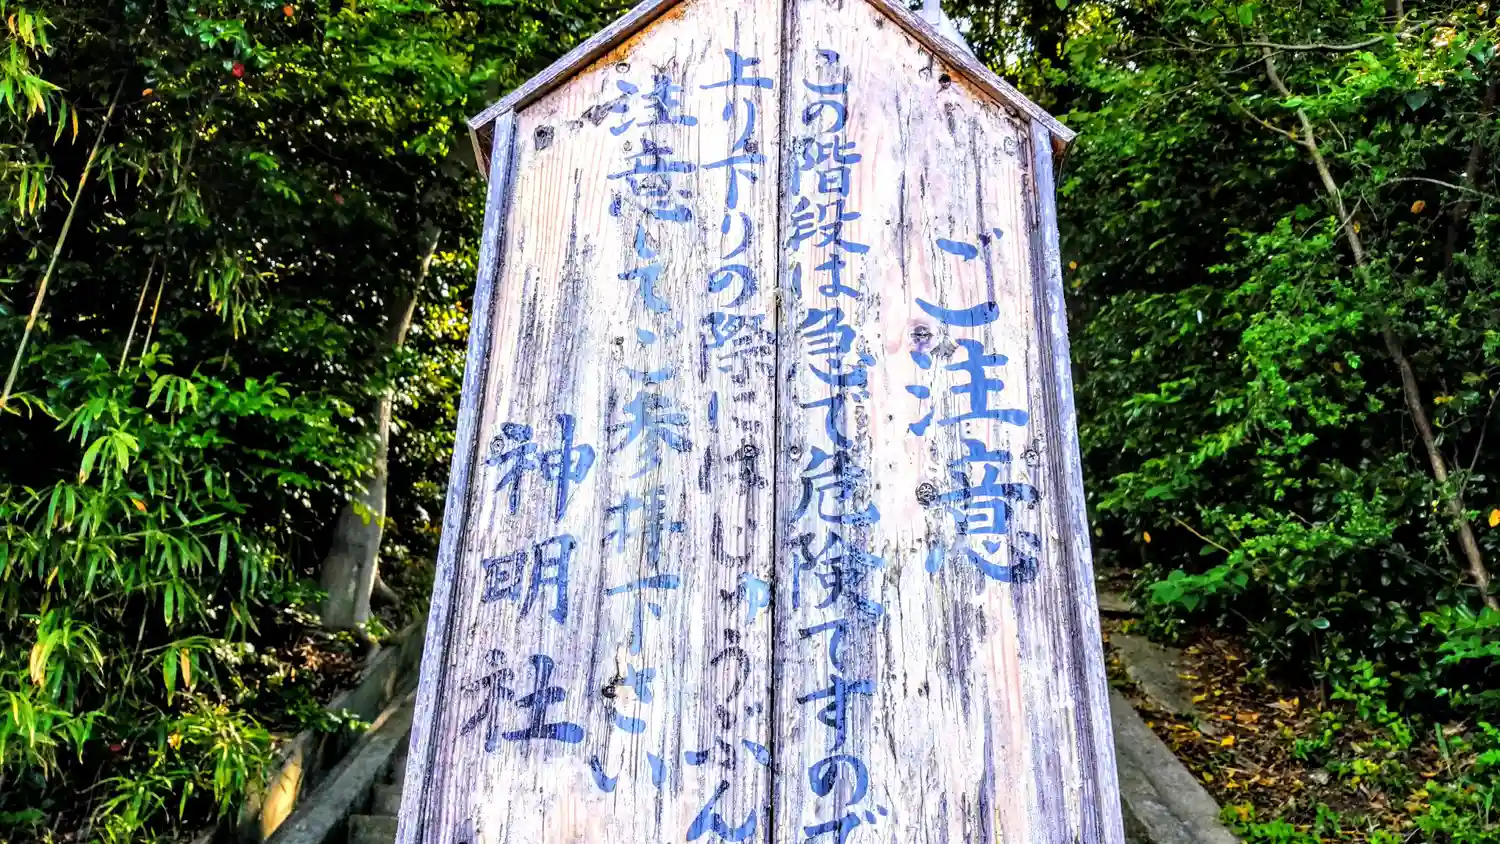 ご注意
この階段は急で危険ですので
上り下りの際にはじゅうぶん
注意してご参拝下さい
神明社